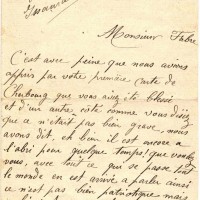 Monsieur Fabre
C'est avec peine que nous avons
appris par votre première carte de
Cherbourg que vous aviez été blessé
et d'un autre côté comme vous disiez
que ce n'était pas bien grave, nous
avons dit, eh bien il est encore a
l'abri pour quelque temps! que voulez
vous, avec tout ce qui se passe tout
le monde en est arrivé a parler ainsi
ce n'est pas bien patriotique mais